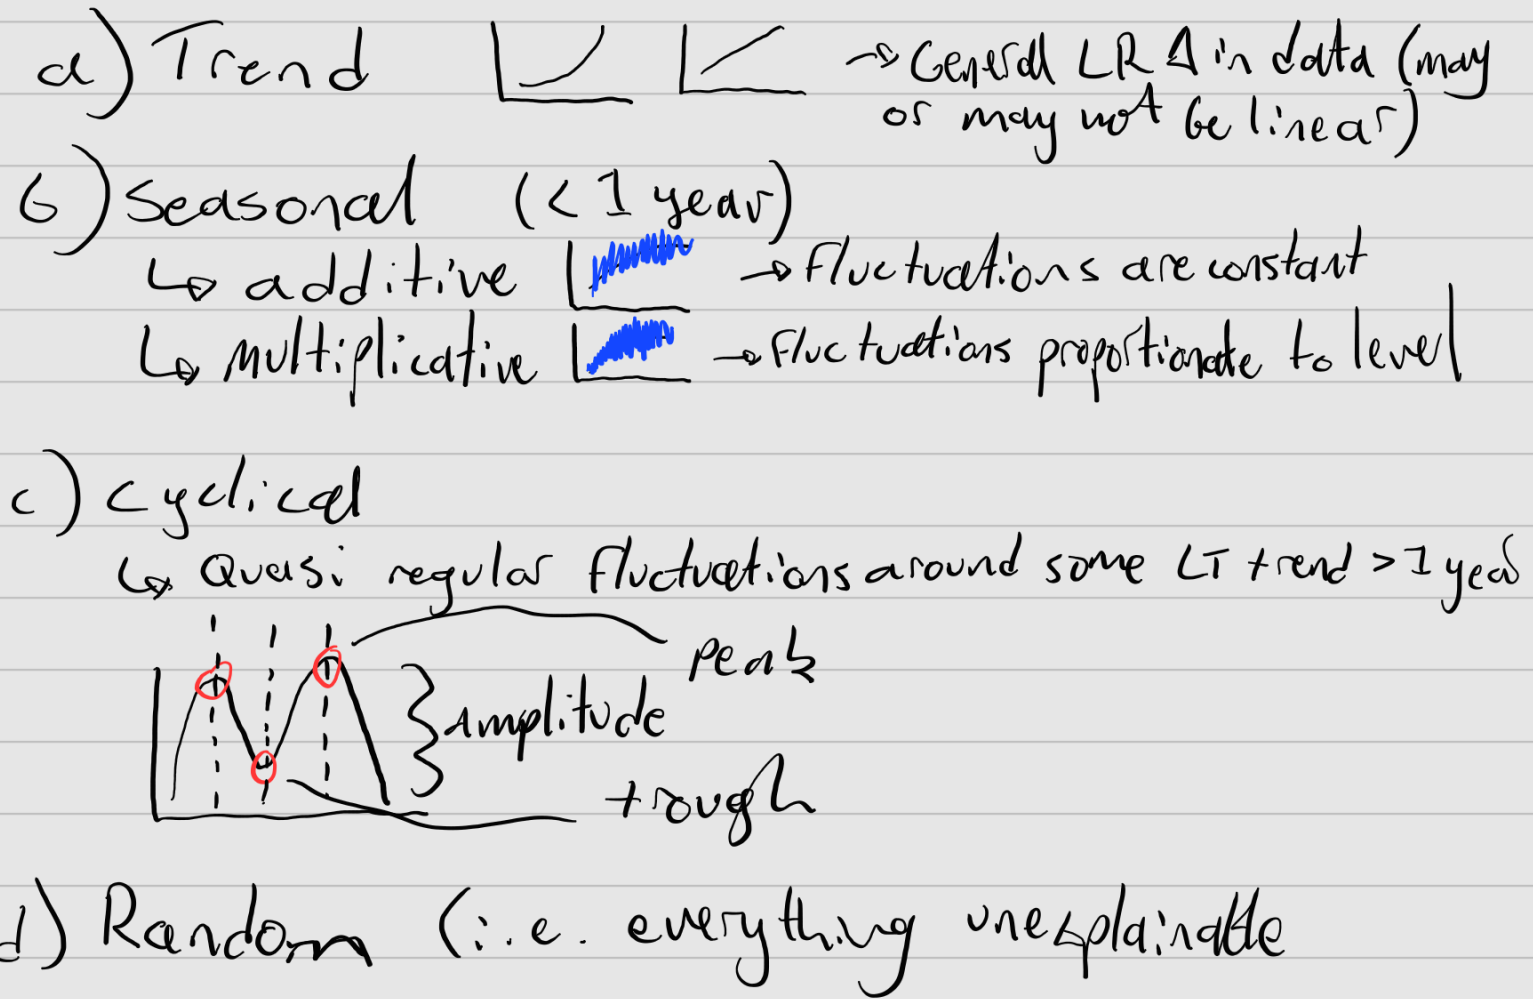 a) Trend → General LR Δ in data (may
or may not be linear)
b) Seasonal (< 1 year)
↳ additive → Fluctuations are constant
↳ Multiplicative → Fluctuations proportionate to level
c) Cyclical
↳ Quasi regular fluctuations around some LT trend > 1 year
Peak
Amplitude
trough
d) Random (i.e. everything unexplainable